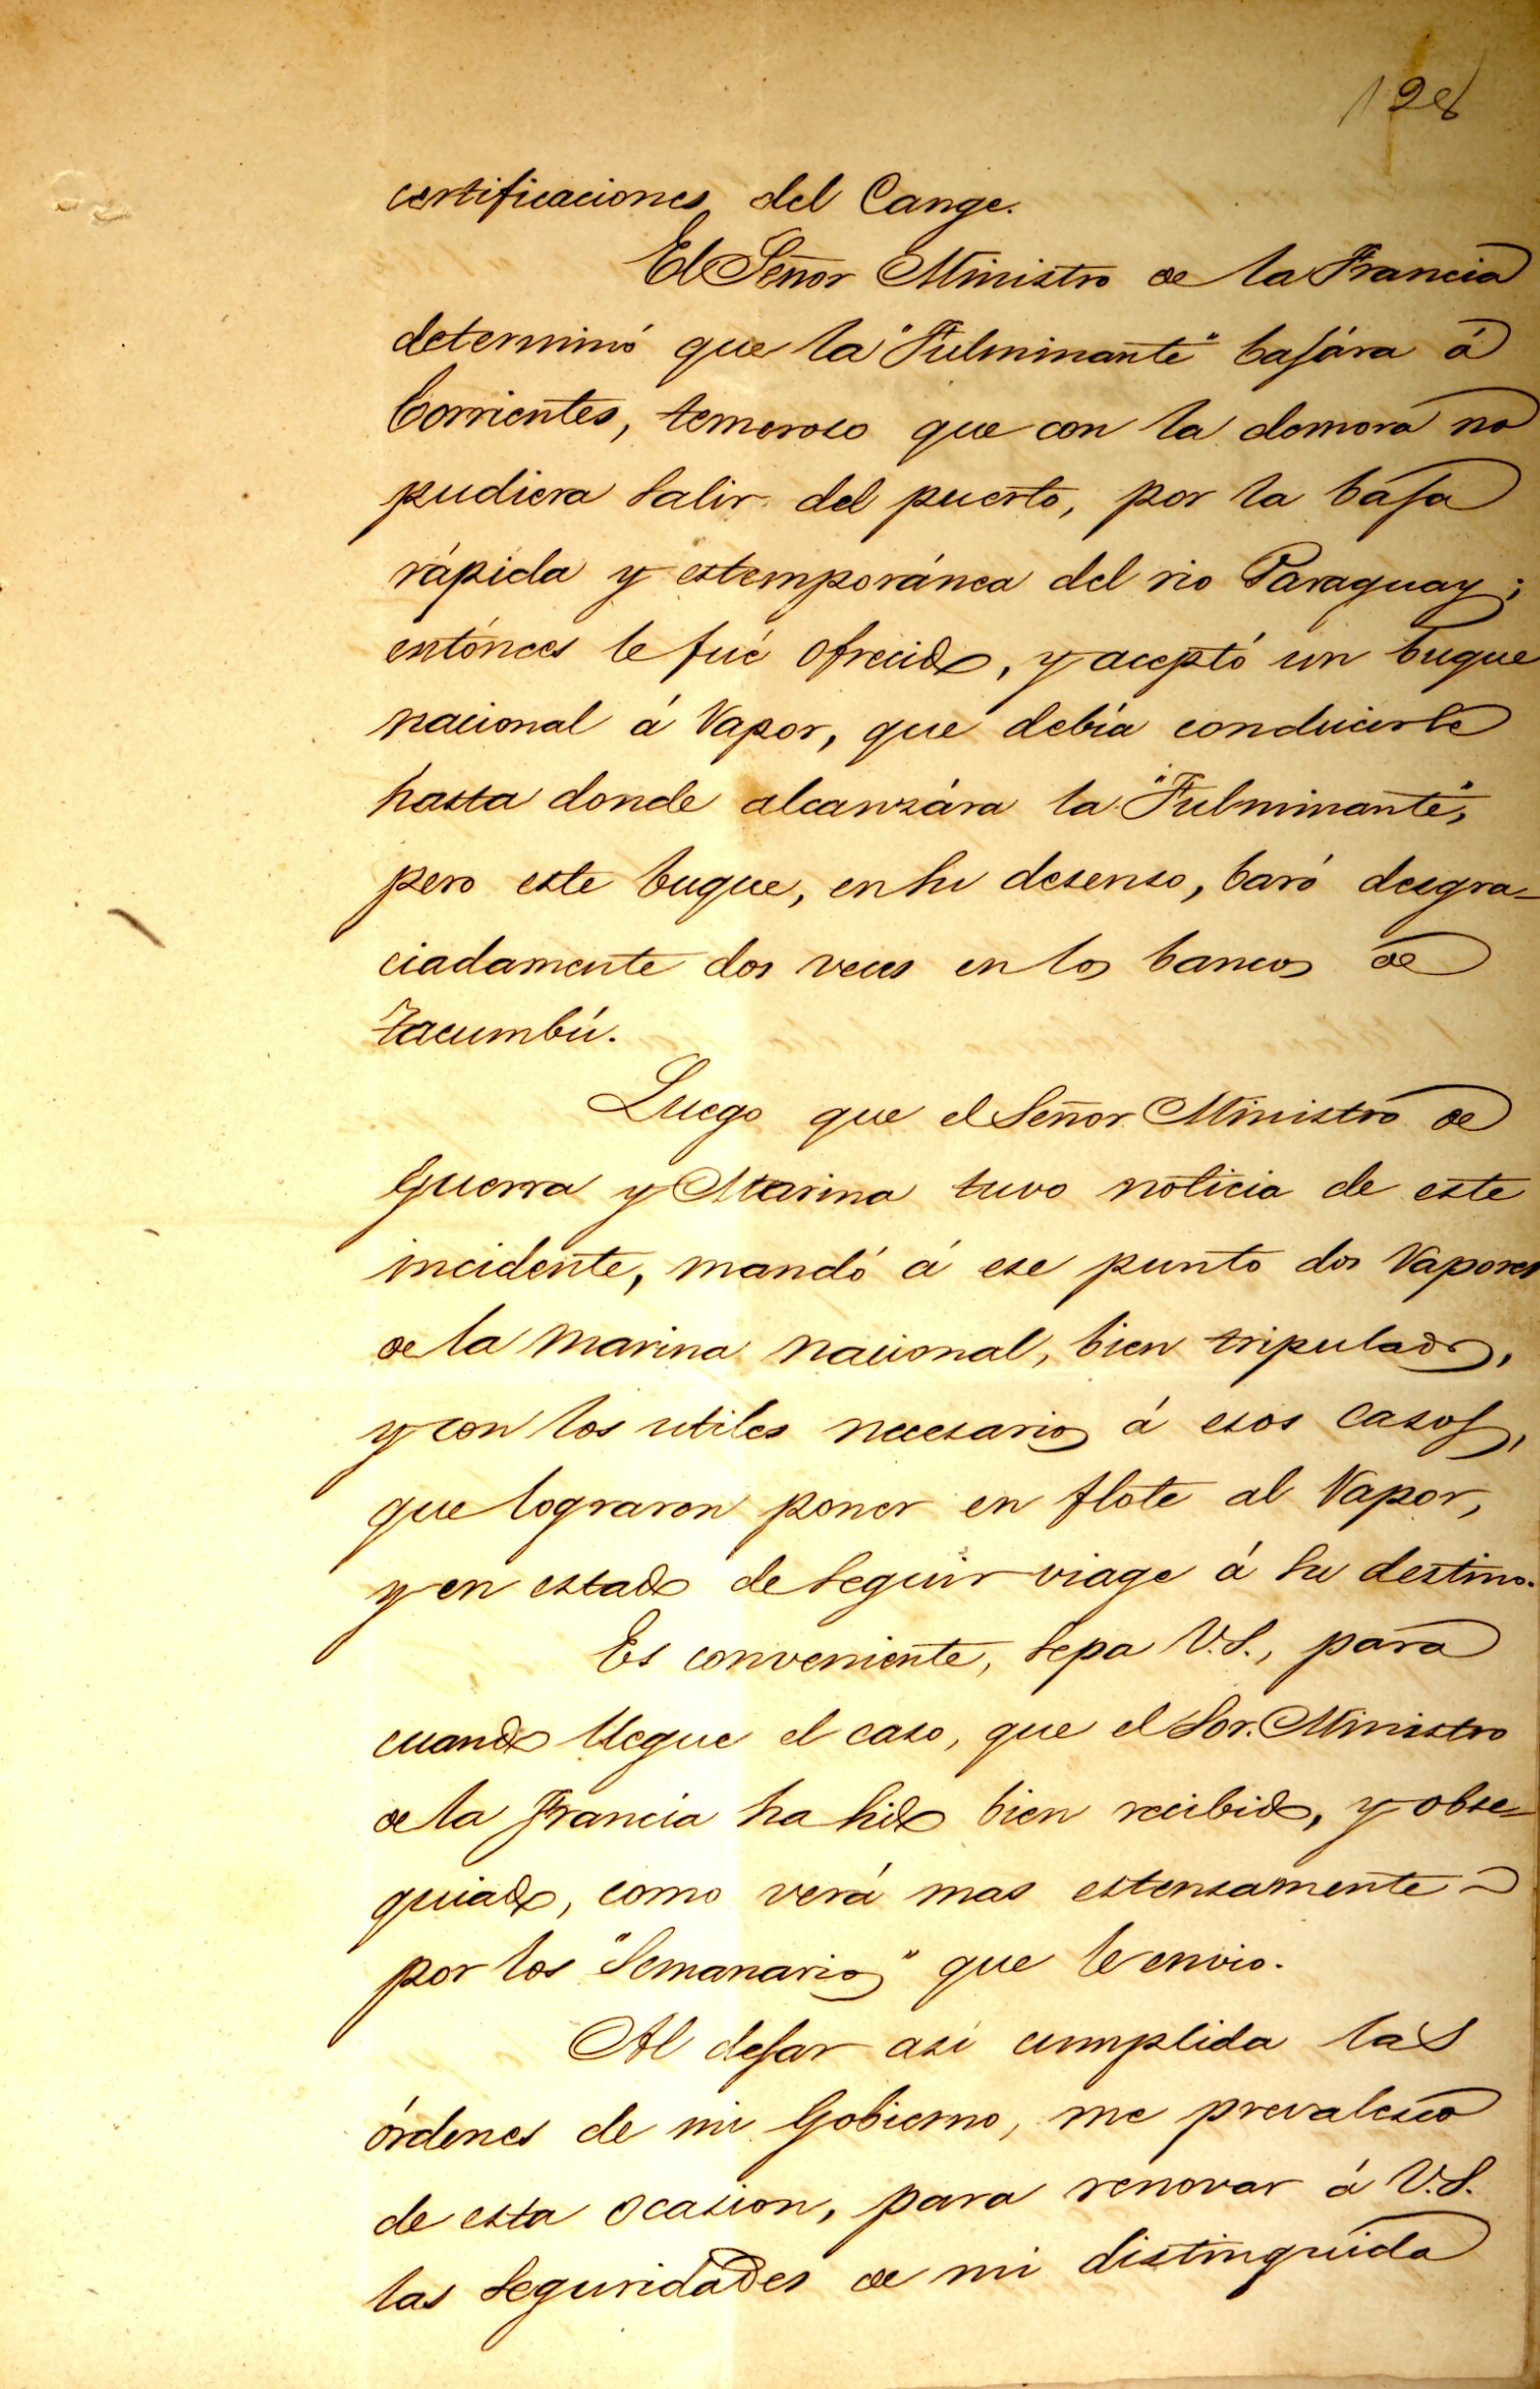 128
certificaciones del Cange.
El Señor Ministro de la Francia
determinó que la "Fulminante" bajára á
Corrientes, temeroso que con la demora no
pudiera salir del puerto, por la baja
rápida y estemporánea del rio Paraguay;
entónces le fué ofrecido, y aceptó un buque
nacional á Vapor, que debia conducirle
hasta donde alcanzára la "Fulminante",
pero este buque, en su desenso, baró desgra-
ciadamente dos veces en los bancos de
Tacumbú.
Luego que el Señor Ministro de
Guerra y Marina tuvo noticia de este
incidente, mandó á ese punto dos Vapores
de la marina nacional, bien tripulados,
y con los utiles necesarios á esos casos,
que lograron poner en flote al Vapor,
y en estado de seguir viage á su destino.
Es conveniente, sepa V.S., para
cuando llegue el caso, que el Sor. Ministro
de la Francia ha sido bien recibido, y obse-
quiado, como verá mas estensamente
por los "Semanarios" que le envio.
Al dejar asi cumplida las
órdenes de mi Gobierno, me prevalesco
de esta ocasion, para renovar á V.S.
las seguridades de mi distinguida